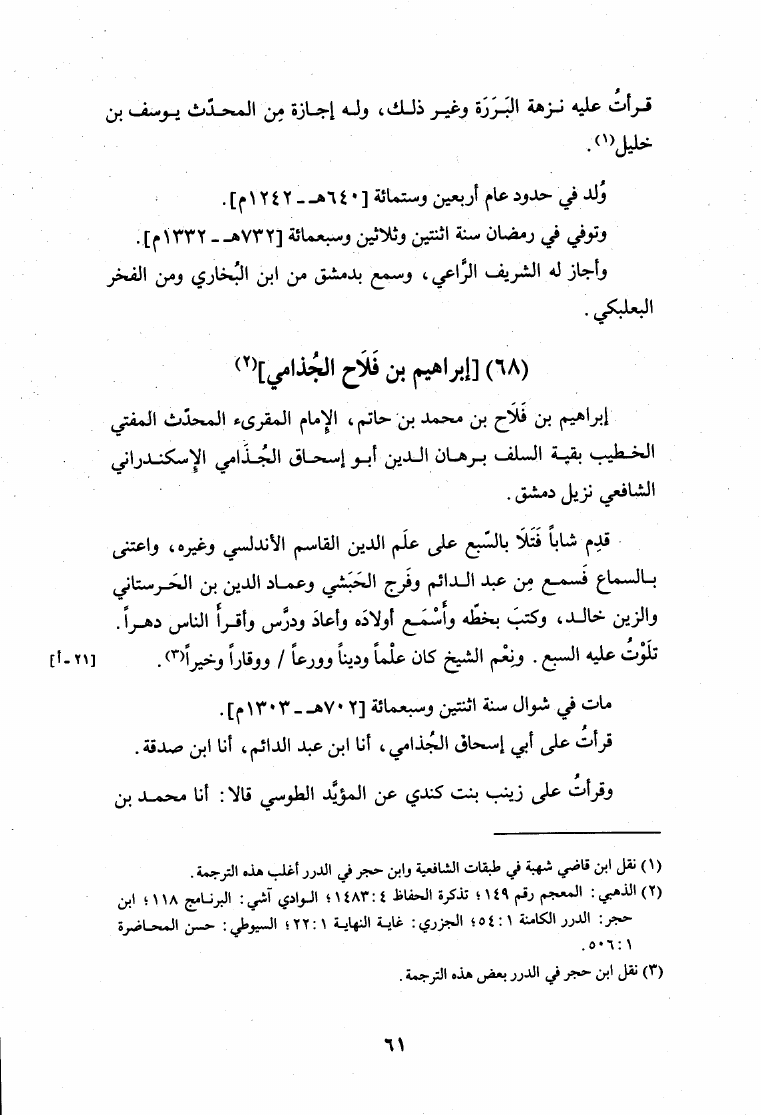 قرأتُ عليه نزهة البَرَرَة وغير ذلك، وله إجازة مِن المحدّث يوسف بن
خليل(١).
وُلد في حدود عام أربعين وستمائة [٦٤٠هـ ـ ١٢٤٢م].
وتوفي في رمضان سنة اثنتين وثلاثين وسبعمائة [٧٣٢هـ ـ ١٣٣٢م].
وأجاز له الشريف الرَّاعي، وسمع بدمشق من ابن البُخاري ومن الفخر
البعلبكي.
(٦٨) [إبراهيم بن فَلَاح الجُذامي](٢)
إبراهيم بن فَلَاح بن محمد بن حاتم، الإمام المقرىء المحدّث المفتي
الخطيب بقية السلف برهان الدين أبو إسحاق الجُذامي الإسكندراني
الشافعي نزيل دمشق.
قدِم شاباً فَتَلَا بالسّبع على علَم الدين القاسم الأندلسي وغيره، واعتنى
بالسماع فَسمع مِن عبد الدائم وفَرج الحَبَشي وعماد الدين بن الحَرستاني
والزين خالد، وكتبَ بخطّه وأَسْمَع أولادَه وأعادَ ودرَّس وأقرأَ الناس دهراً.
تلَوْتُ عليه السبع. ونِعْم الشيخ كان علْماً وديناً وورعاً / ووقاراً وخيراً(٣). [٢١-أ]
مات في شوال سنة اثنتين وسبعمائة [٧٠٢هـ ـ ١٣٠٣م].
قرأتُ على أبي إسحاق الجُذامي، أنا ابن عبد الدائم، أنا ابن صدقة.
وقرأتُ على زينب بنت كندي عن المؤيَّد الطوسي قالا: أنا محمد بن
(١) نقل ابن قاضي شهبة في طبقات الشافعية وابن حجر في الدرر أغلب هذه الترجمة.
(٢) الذهبي: المعجم رقم ١٤٩؛ تذكرة الحفاظ ٤:١٤٨٣؛ الوادي آشي: البرنامج ١١٨؛ ابن
حجر: الدرر الكامنة ١:٥٤؛ الجزري: غاية النهاية ١:٢٢؛ السيوطي: حسن المحاضرة
١:٥٠٦.
(٣) نقل ابن حجر في الدرر بعض هذه الترجمة.
٦١